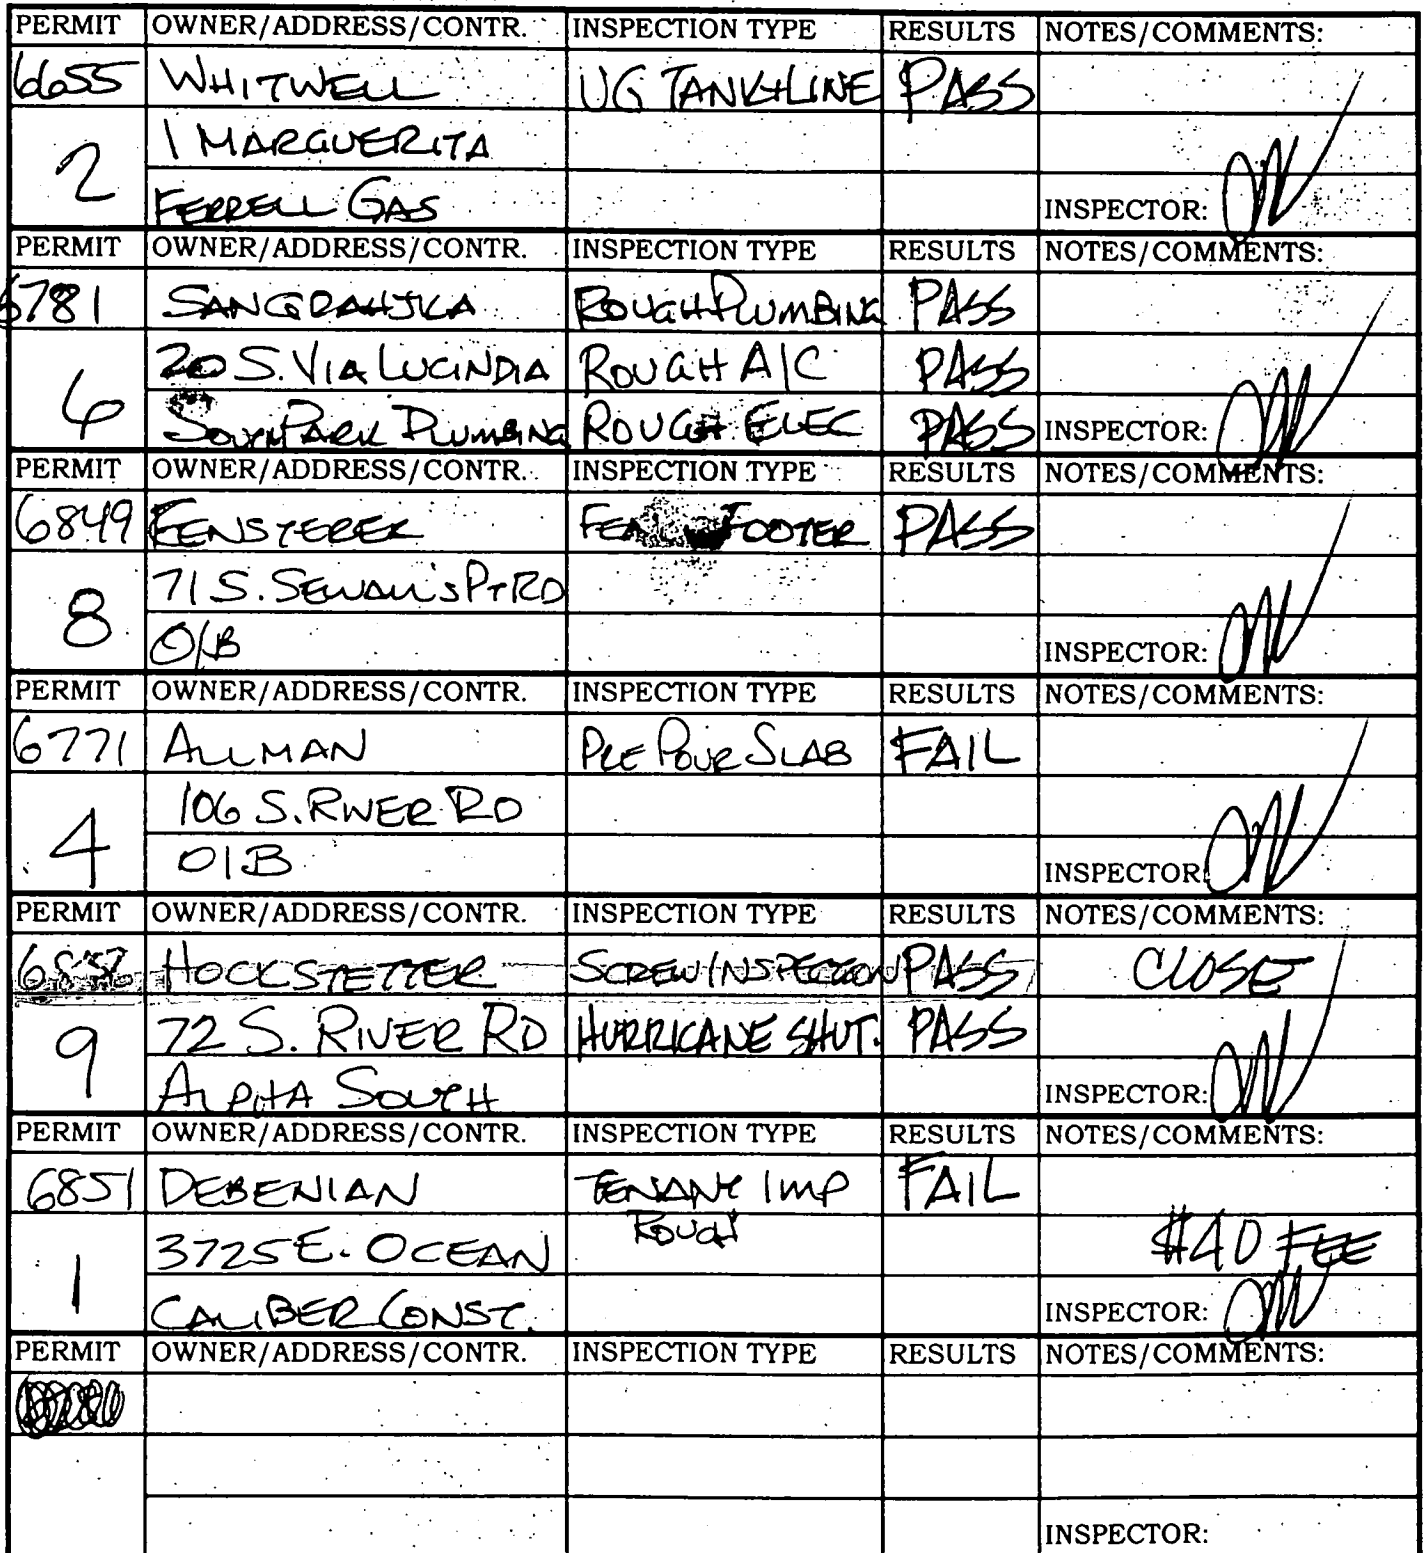 PERMIT OWNER/ADDRESS/CONTR. INSPECTION TYPE RESULTS NOTES/COMMENTS:
6655 WHITWELL UG TANK+LINE PASS
1 MARGUERITA
2
FERRELL GAS INSPECTOR:
PERMIT OWNER/ADDRESS/CONTR. INSPECTION TYPE RESULTS NOTES/COMMENTS:
6781 ROUGH PLUMBING PASS
20 S. VIA LUCINDIA ROUGH A/C PASS
6
SOUTHPARK PLUMBING ROUGH ELEC PASS INSPECTOR:
PERMIT OWNER/ADDRESS/CONTR. INSPECTION TYPE RESULTS NOTES/COMMENTS:
6849 FENSTERER FOOTER PASS
71 S. SEWALL'S PT RD
8
O/B INSPECTOR:
PERMIT OWNER/ADDRESS/CONTR. INSPECTION TYPE RESULTS NOTES/COMMENTS:
6771 ALLMAN PRE POUR SLAB FAIL
106 S. RIVER RD
4
O/B INSPECTOR:
PERMIT OWNER/ADDRESS/CONTR. INSPECTION TYPE RESULTS NOTES/COMMENTS:
HOCKSTETTER SCREW INSPECTION PASS CLOSE
72 S. RIVER RD HURRICANE SHUT. PASS
9
ALPHA SOUTH INSPECTOR:
PERMIT OWNER/ADDRESS/CONTR. INSPECTION TYPE RESULTS NOTES/COMMENTS:
6851 DEBENIAN TENANT IMP FAIL
3725 E. OCEAN ROUGH $40 FEE
1
CALIBER CONST. INSPECTOR:
PERMIT OWNER/ADDRESS/CONTR. INSPECTION TYPE RESULTS NOTES/COMMENTS:
INSPECTOR: